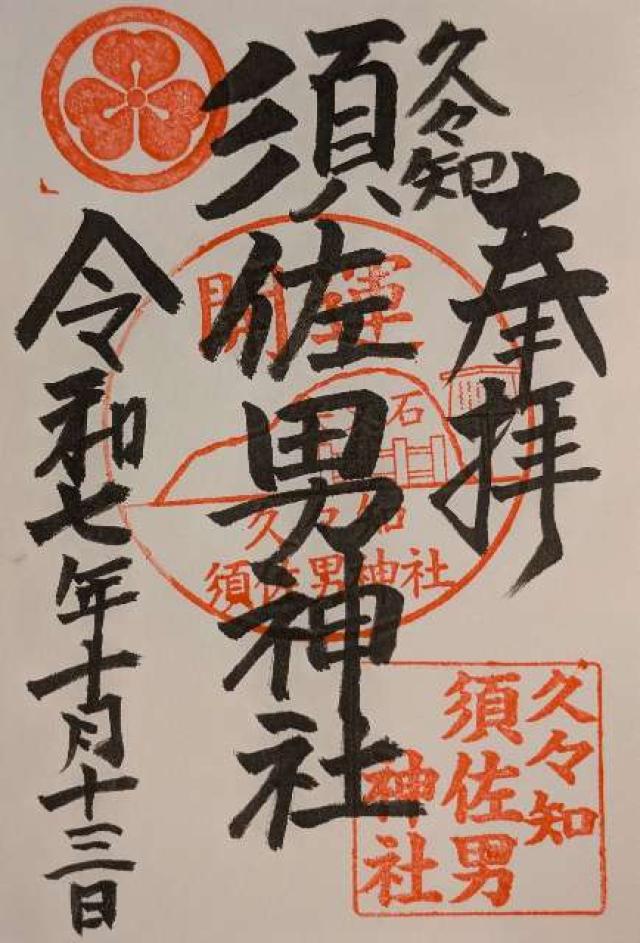 奉拝
久々知
須佐男神社
令和七年十月十三日
開運
石
久々知
須佐男神社
久々知
須佐男
神社